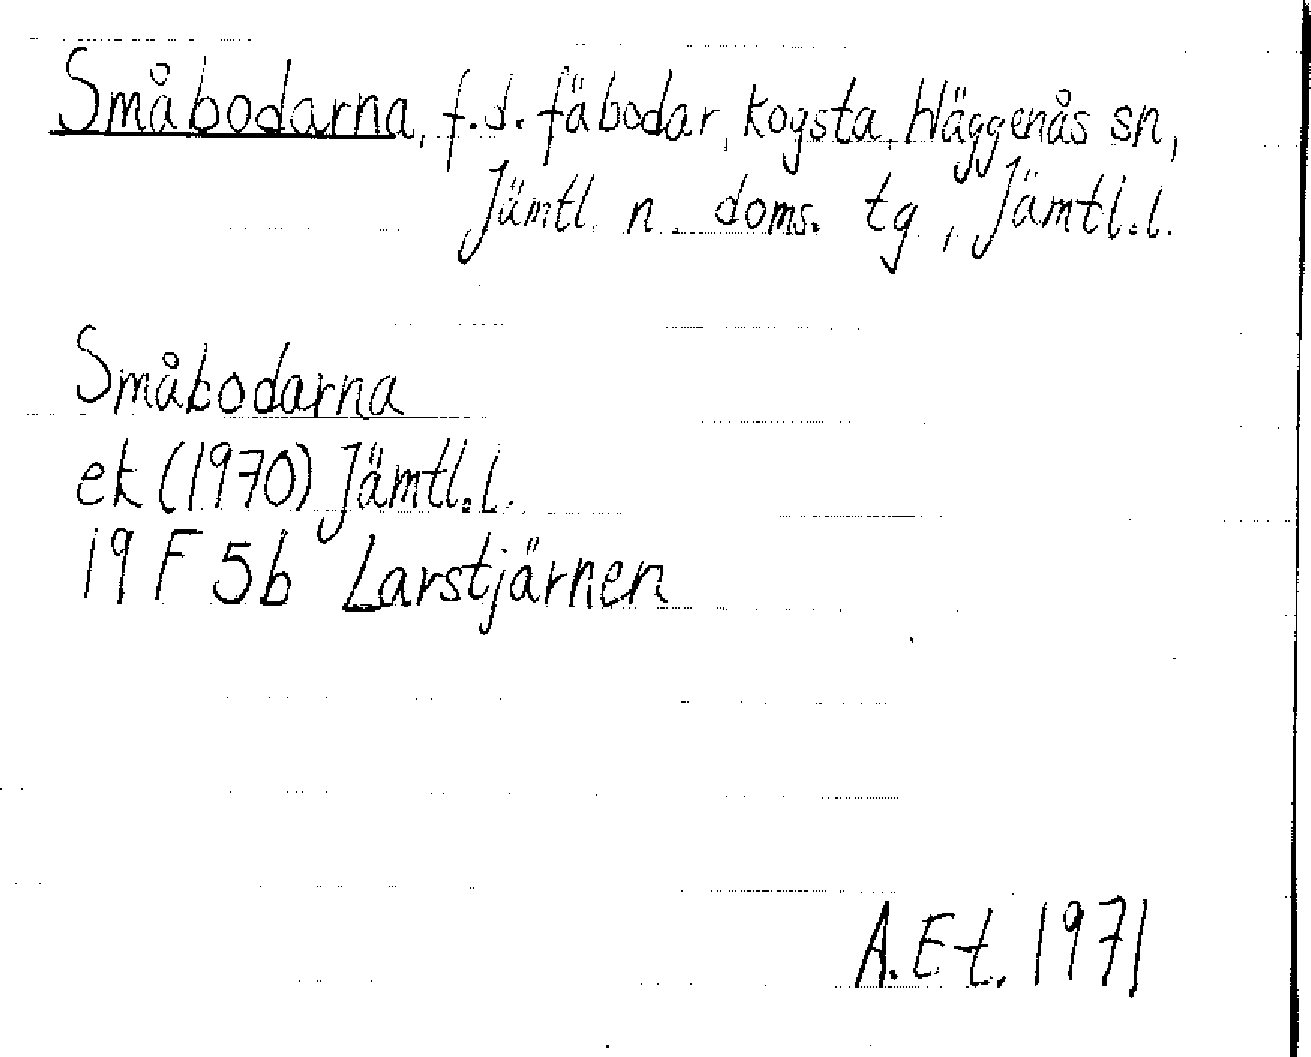 Småbodarna, f.d. fäbodar, Kogsta, Häggenås sn,
Jämtl. n. doms. tg, Jämtl.l.
Småbodarna
ek (1970) Jämtl.l.
19 F 5b Larstjärnen
A.Et. 1971